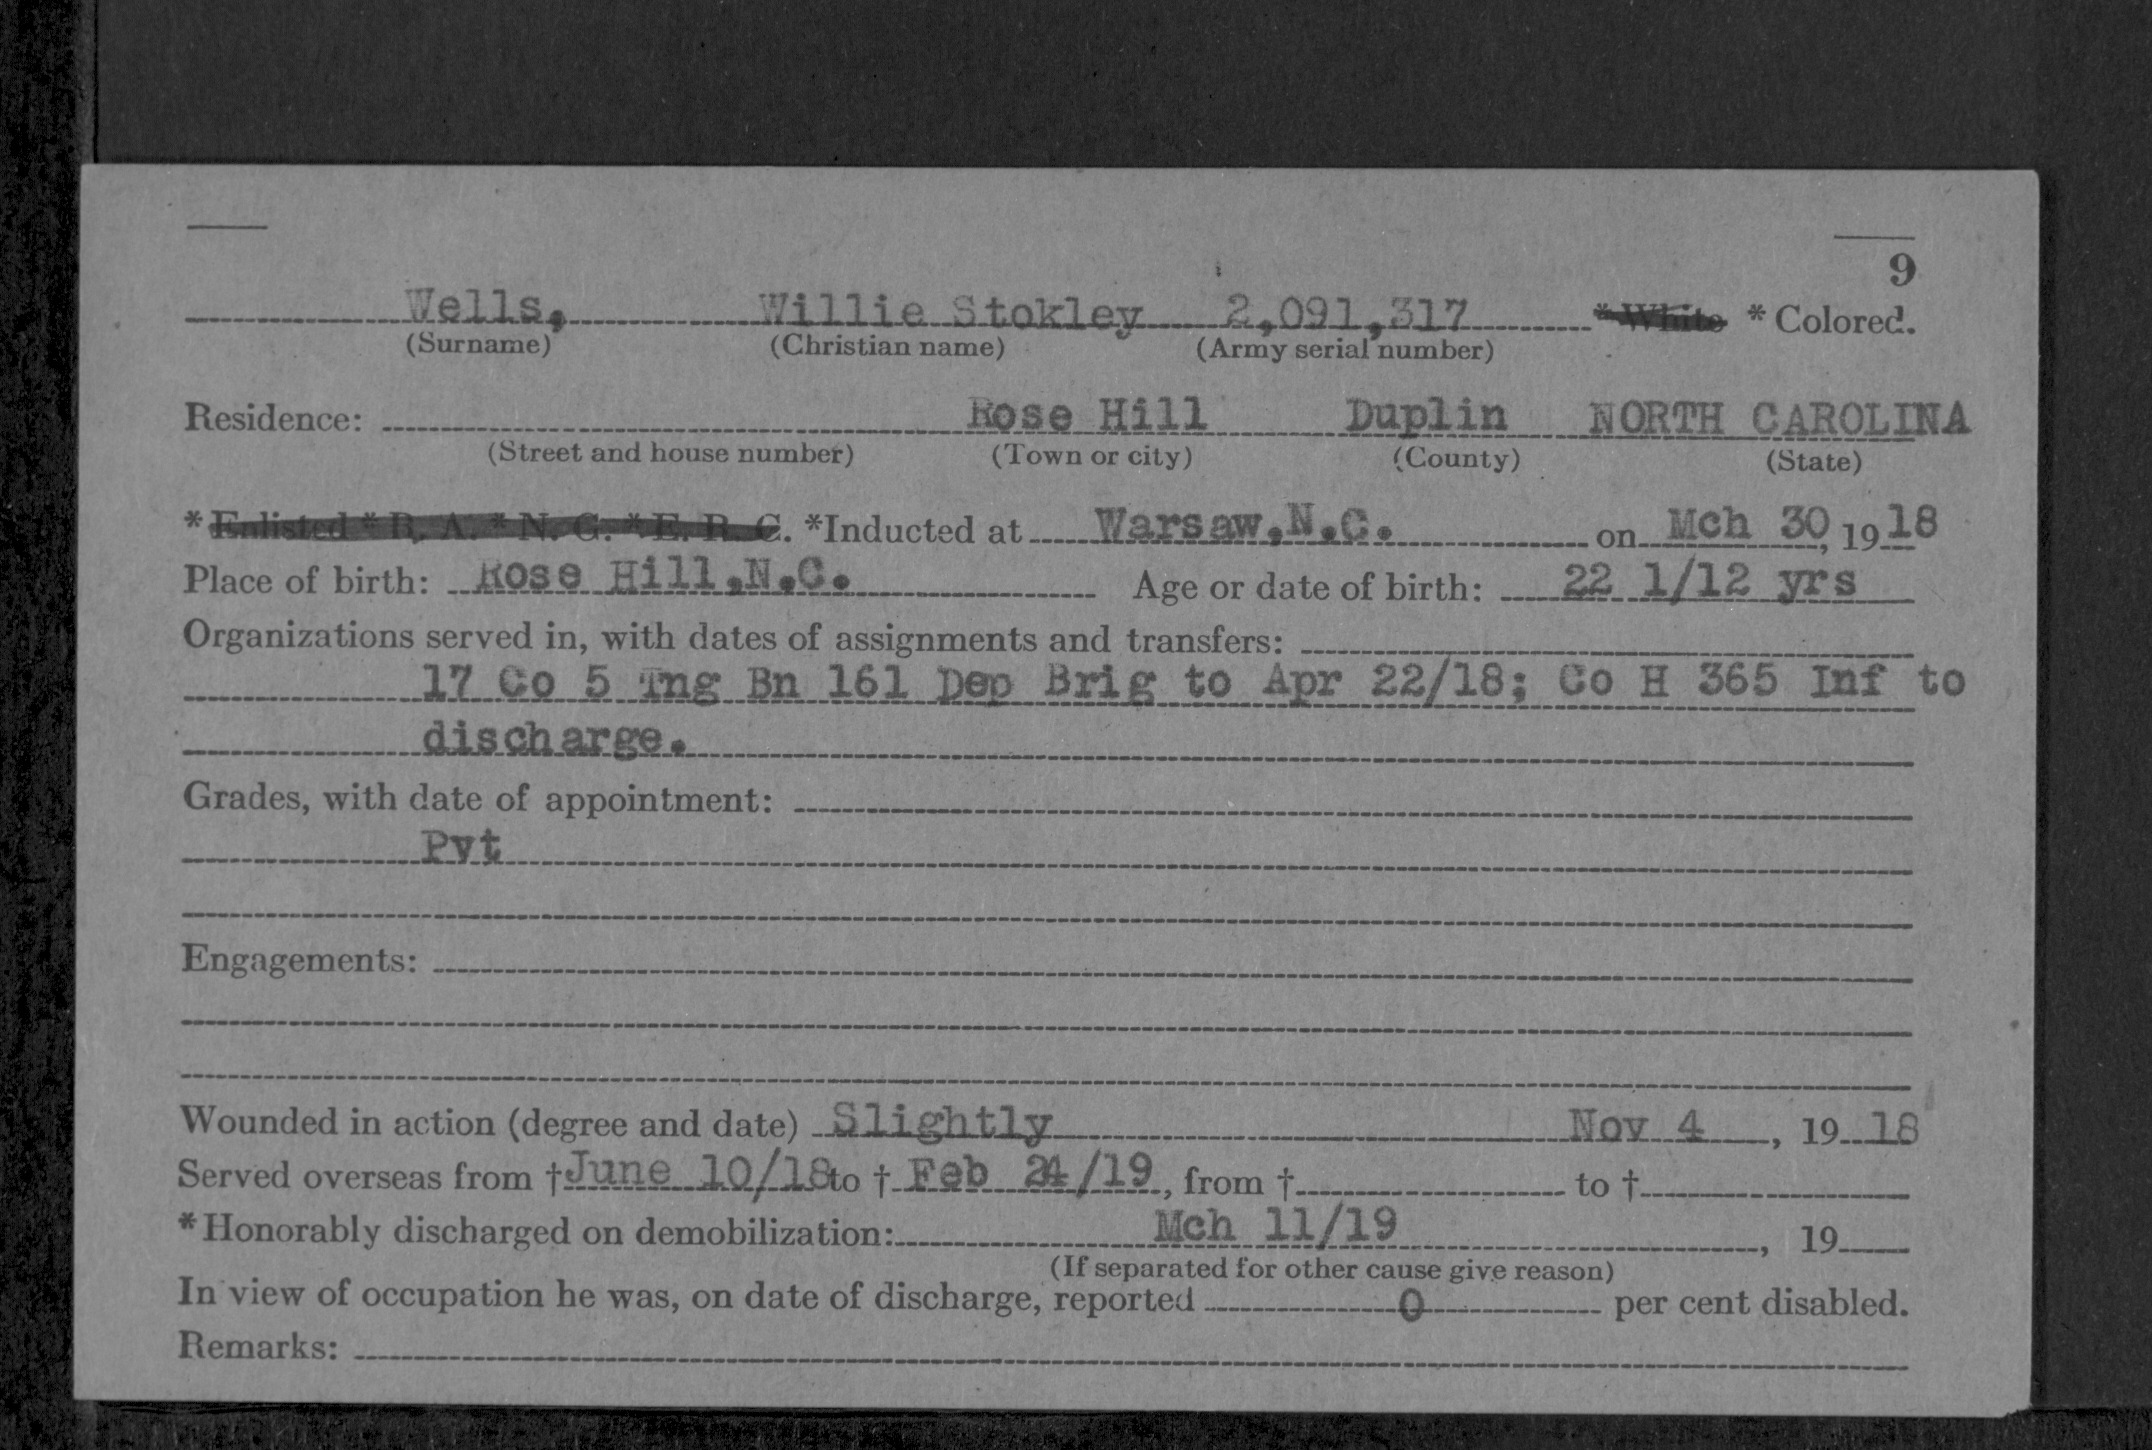 9
Wells, Willie Stokley 2,091,317 *White * Colored.
(Surname) (Christian name) (Army serial number)
Residence: Rose Hill Duplin NORTH CAROLINA
(Street and house number) (Town or city) (County) (State)
*Enlisted * R. A. * N. G. * E. R. C. *Inducted at Warsaw,N.C. on Mch 30, 1918
Place of birth: Rose Hill,N.C. Age or date of birth: 22 1/12 yrs
Organizations served in, with dates of assignments and transfers:
17 Co 5 Tng Bn 161 Dep Brig to Apr 22/18; Co H 365 Inf to
discharge.
Grades, with date of appointment:
Pvt
Engagements:
Wounded in action (degree and date) Slightly Nov 4, 1918
Served overseas from † June 10/18 to † Feb 24/19, from † to †
*Honorably discharged on demobilization: Mch 11/19, 19
(If separated for other cause give reason)
In view of occupation he was, on date of discharge, reported 0 per cent disabled.
Remarks: